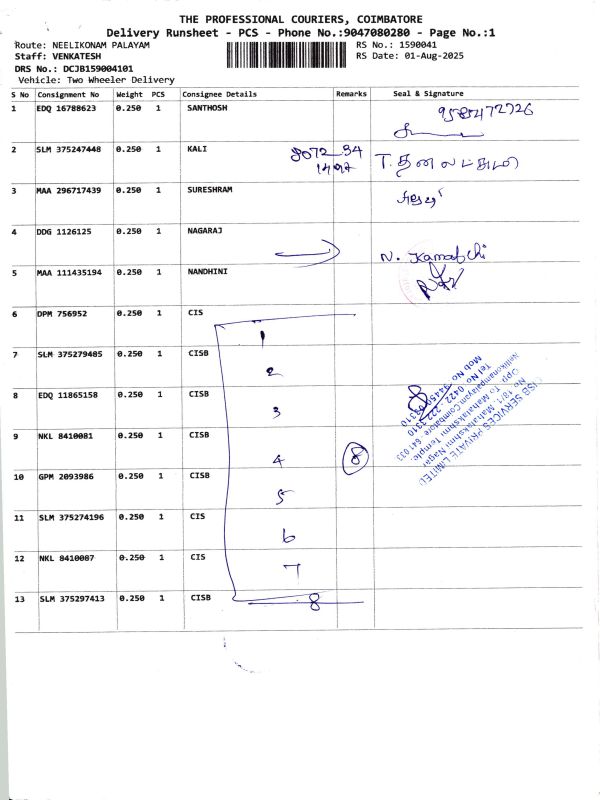 THE PROFESSIONAL COURIERS, COIMBATORE
Delivery Runsheet - PCS - Phone No.:9047080280 - Page No.:1
Route: NEELIKONAM PALAYAM RS No.: 1590041
Staff: VENKATESH RS Date: 01-Aug-2025
DRS No.: DCJB159004101
Vehicle: Two Wheeler Delivery
S No Consignment No Weight PCS Consignee Details Remarks Seal & Signature
1 EDQ 16788623 0.250 1 SANTHOSH
2 SLM 375247448 0.250 1 KALI
3 MAA 296717439 0.250 1 SURESHRAM
4 DDG 1126125 0.250 1 NAGARAJ
N. Kamatchi
5 MAA 111435194 0.250 1 NANDHINI
6 DPM 756952 0.250 1 CIS
1
7 SLM 375279485 0.250 1 CISB
2
8 EDQ 11865158 0.250 1 CISB
3
9 NKL 8410081 0.250 1 CISB
4 8
10 GPM 2093986 0.250 1 CISB
5
11 SLM 375274196 0.250 1 CIS
6
12 NKL 8410087 0.250 1 CIS
7
13 SLM 375297413 0.250 1 CISB
8
CISB SERVICES PRIVATE LIMITED
No. 18/1, Mahalakshmi Nagar
Opp. To. Mahalakshmi Temple
Neelikonampalayam, Coimbatore 641 033